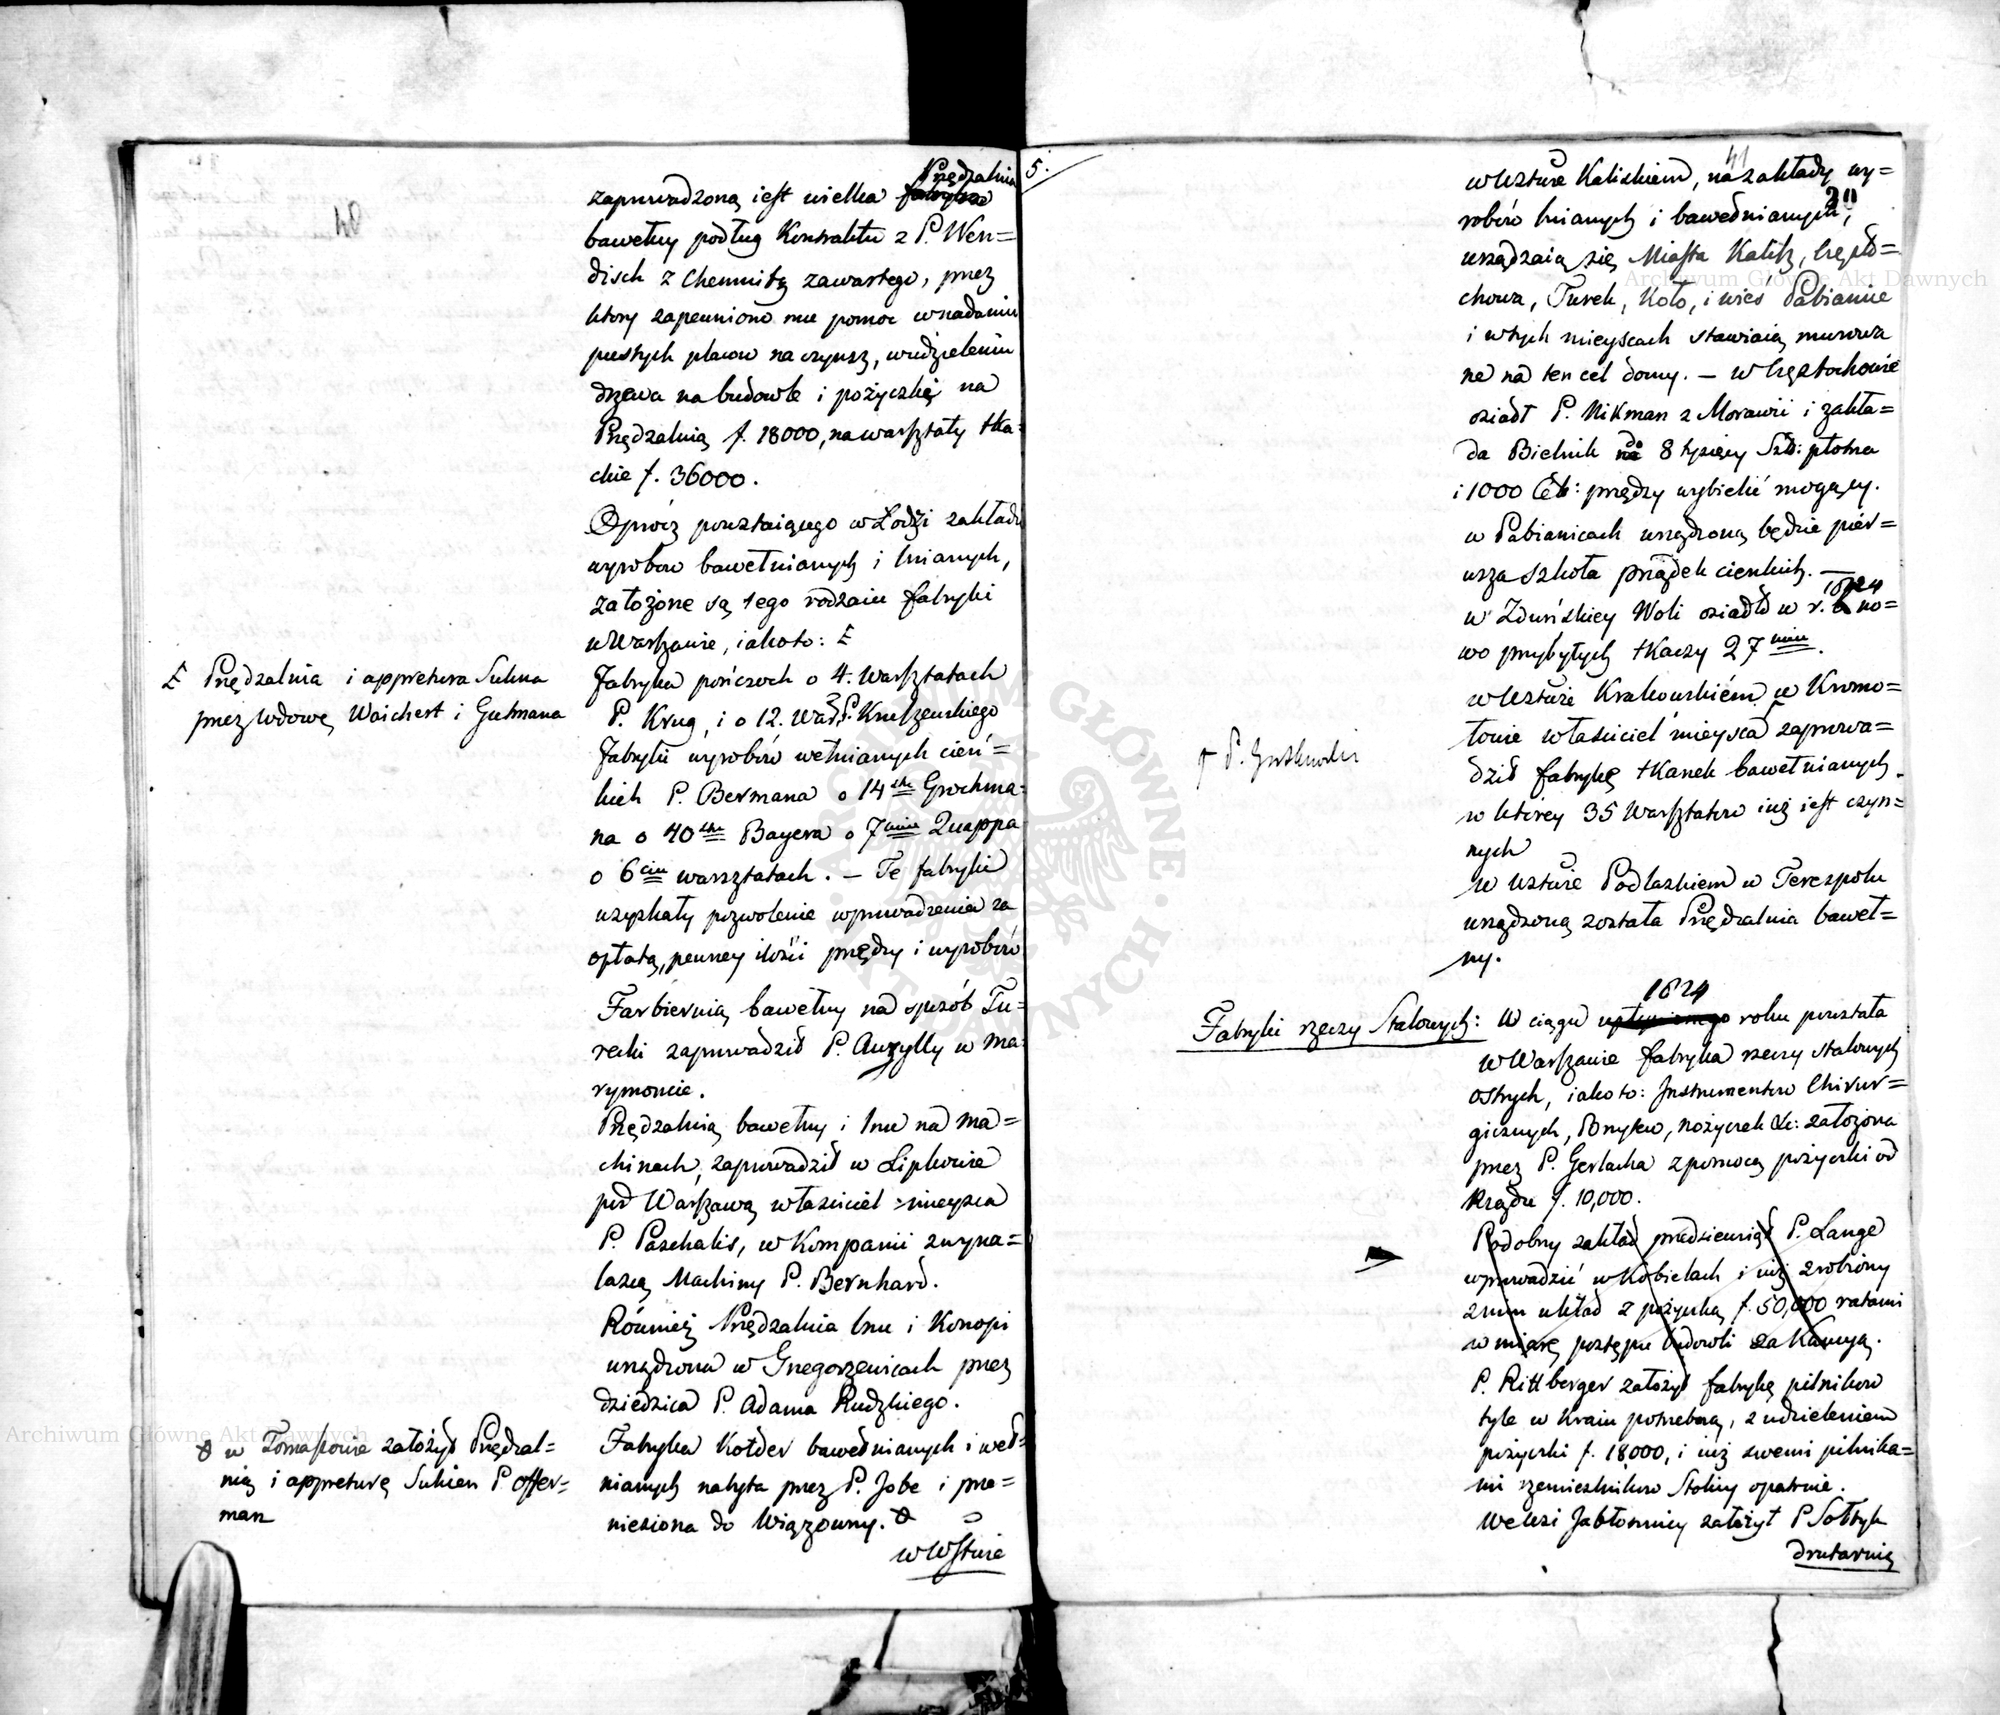 Przędzalnia
zaprowadzoną iest wielka fabryka
bawełny podług Kontraktu z P. Wen=
disch z Chemnitz zawartego, przez
ktory zapewniono mu pomoc w nadaniu
pustych placow na czynsz, w udzieleniu
drzewa na budowle i pożyczkę na
Przędzalnią f. 18000, na warsztaty tka=
ckie f. 36000.
Oprócz powstaiącego w Łodzi zakładu
wyrobow bawełnianych i lnianych,
założone są tego rodzaiu fabryki
w Warszawie, iako to:
Przędzalnia i appretura Sukna
przez Wdowę Waichert i Gutmana
Fabryka pończoch o 4. Warsztatach
P. Krug, i o 12. War. P. Kruszewskiego
Fabryki wyrobów wełnianych cień=
kich P. Bermana o 14stu Grochma=
na o 40stu Bayera o 7miu Quappa
o 6ciu warsztatach. — Te fabryki
uzyskały pozwolenie wprowadzenia za
opłatą, pewney ilości przędzy i wyrobów
Farbiernią bawełny na sposób Tu=
recki zaprowadził P. w Ma=
rymoncie.
Przędzalnią bawełny i lnu na ma=
chinach, zaprowadził w Lipkowie
pod Warszawą właściciel mieysca
P. Paschalis, w Kompanii z wyna=
lazcą Machiny P. Bernhard.
Również Przędzalnia lnu i Konopi
urządzona w Gregorzewicach przez
dziedzica P. Adama Rudzkiego.
Fabryka Kołder bawełnianych i weł=
nianych nabyta przez P. Jobe i prze=
niesiona do Wiązowny.
w Tomaszowie założył Przędzal=
nią i appreturę Sukien P. Offer=
man
w Wztwie
5.
41
w Wztwie Kaliskiem, na zakłady wy=
30
robów lnianych i bawełnianych,
urządzaią się Miasta Kalisz, Często=
chowa, Turek, Koło, i wieś Pabianice
i w tych mieyscach stawiaią murowa
ne na ten cel domy. — w Częstochowie
osiadł P. Nikman z Morawii i zakła=
da Bielnik na do 8 tysięcy Szt: płotna
i 1000 Ctn: przędzy wybielić mogący.
w Pabianicach urządzoną będzie pier=
wsza szkoła prządek cienkich. —
1824
w Zduńskiey Woli osiadło w r. no=
wo przybyłych tkaczy 27miu.
w Wztwie Krakowskiém w Kromo=
łowie właściciel mieysca zaprowa=
dził fabrykę tkanek bawełnianych
w którey 35 Warsztatów iuż iest czyn=
nych
w Wztwie Podlaskiem w Terespolu
urządzoną została Przędzalnia baweł=
ny.
1824
Fabryki rzeczy Stalowych: W ciągu upłynionego roku powstała
w Warszawie fabryka rzeczy stalowych
ostrych, iako to: Instrumentów Chirur=
gicznych, Brzytw, nożyczek &c: założona
przez P. Gerlacha z pomocą pożyczki od
Rządu f. 10,000.
Podobny zakład przedsiewziął P. Lange
wprowadzić w Kobielach i iuż zrobiony
z nim układ z pożyczką f. 50,000 ratami
w miarę postępu budowli za Kaucyą.
P. Rittberger założył fabrykę pilników
tyle w Kraiu potrzebną, z udzieleniem
pożyczki f. 18000, i iuż swemi pilnika=
mi rzemieślnikow Stolicy opatruie.
We Wsi Jabłonnicy założył P Sołtyk
drutarnią